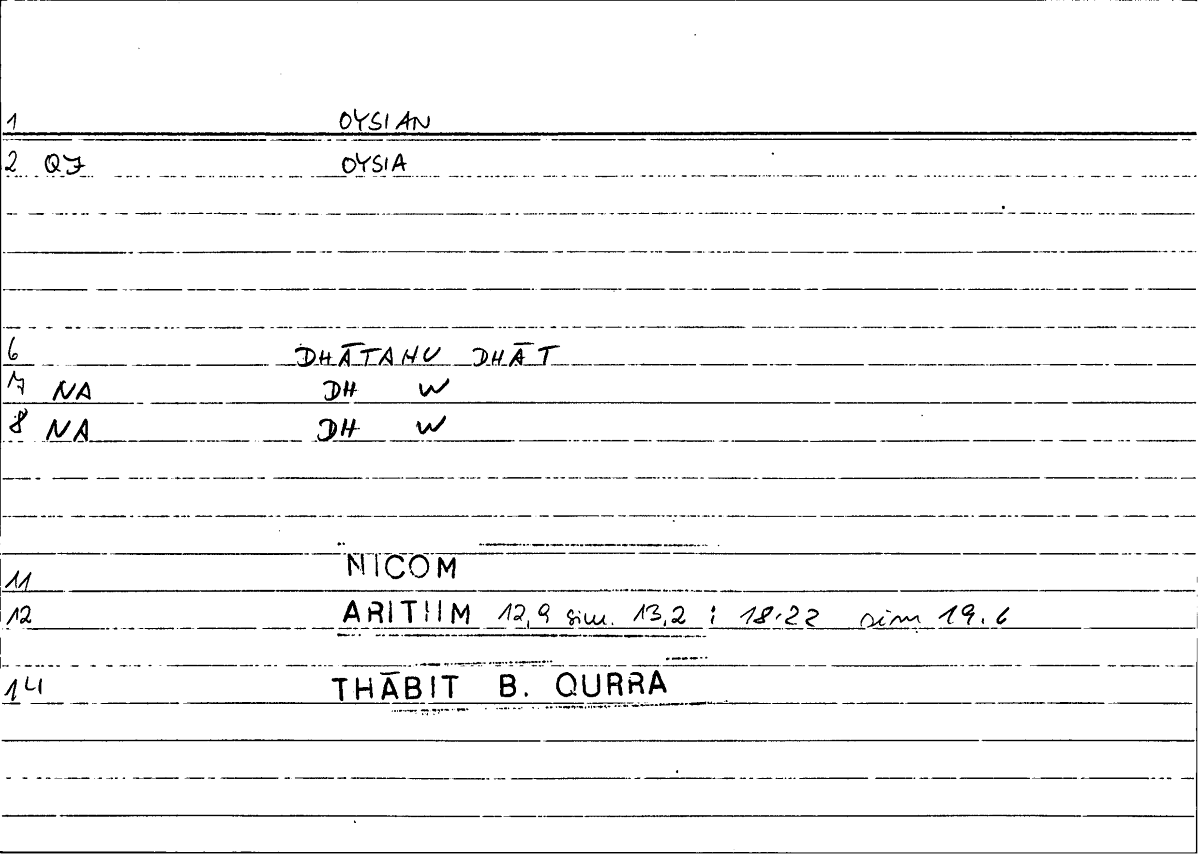 1 OYSIAN
2 QF OYSIA
6 DHĀTAHU DHĀT
7 NA DH W
8 NA DH W
11 NICOM
12 ARITHM 12,9 sim. 13,2 ; 18.22 sim 19.6
14 THĀBIT B. QURRA